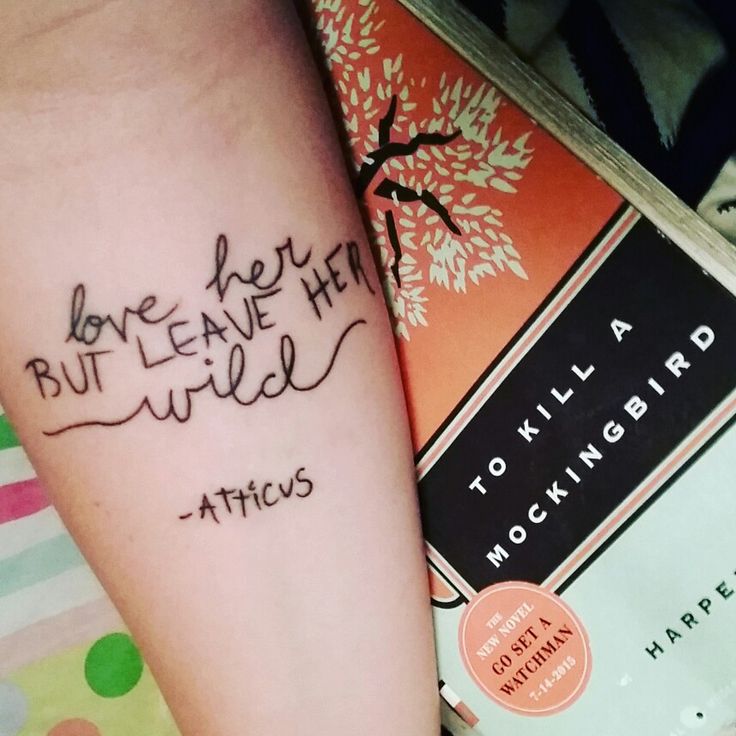 love her
BUT LEAVE HER
wild
-ATTiCUS
TO KILL A
MOCKINGBIRD
HARPE
THE
NEW NOVEL
GO SET A
WATCHMAN
7-14-2015